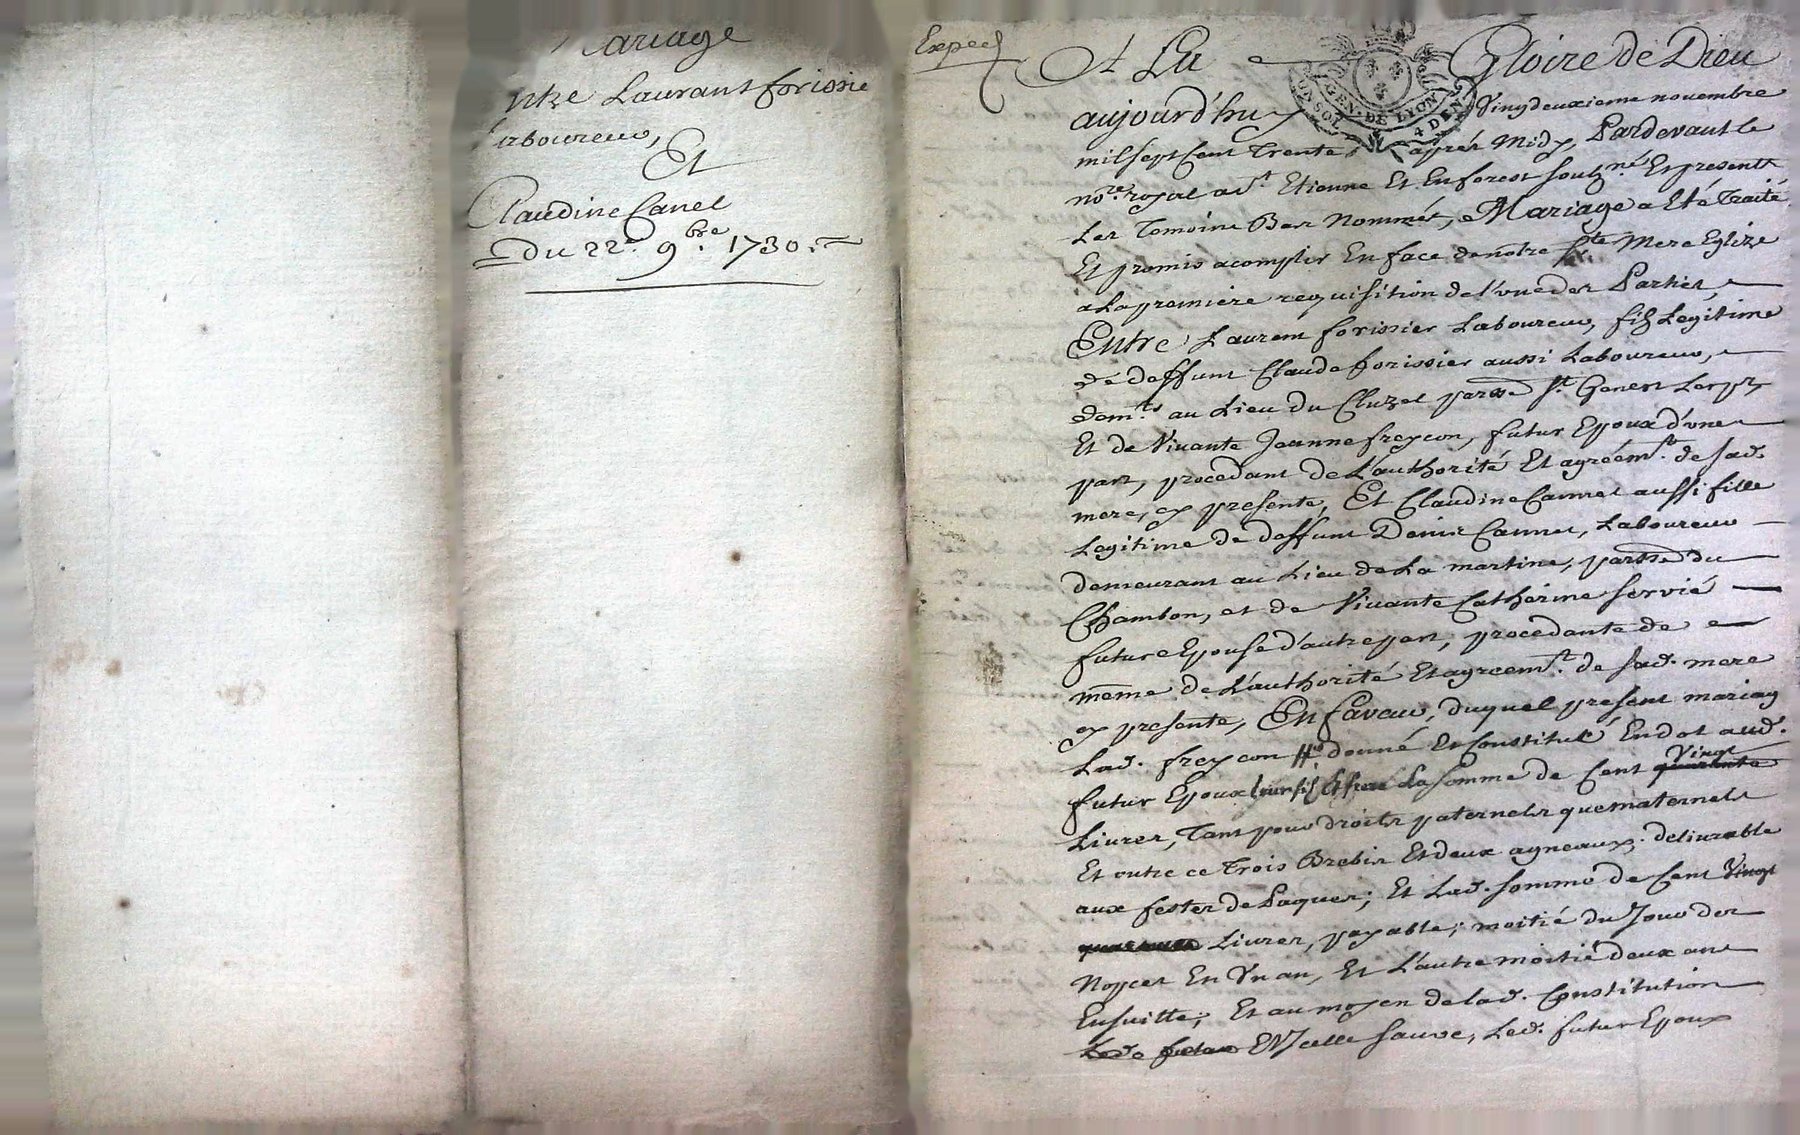 ariage
ntre Laurant forissie
Laboureur,
Et
Claudine Canel
Du 22e. 9bre. 1730.
Exped
A La Gloire de Dieu
GEN. DE LYON
4 DEN
aujourd'huy Vingdeuxieme novembre
mil sept Cent Trente, après Midy, Pardevant le
nore. royal a St. Etienne Et En forest soubzné. Et presentt
Les Temoins Bas Nommés, Mariage a Eté Traité
Et promis acomplir En face de notre Ste Mere Eglize
a La premiere requisition de l'une des Parties,
Entre Laurent forissier Laboureur, fils Legitime
de deffunt Claude forissier aussi Laboureur,
demts au Lieu du Cluzel parsse St. Genest Lerpt
Et de Vivante Jeanne freycon, futur Epoux d'vne
part, procedant de L'authorité Et agréemt. de sad.
mere, cy presente, Et Claudine Cannel aussi fille
Legitime de deffunt Denis Cannel, Laboureur
demeurant au Lieu de La martine, parsse du
Chambon, et de Vivante Catherine servié
future Epouse d'autre part, procedante de
même de L'authorité Et agreemt. de sad. mere
cy presente, En faveur, duquel present mariag
Lad. freycon donné Et Constitué En dot aud.
futur Epoux Leur fils Et frere La somme de Cent Vingt quarante
Livres, Tant pour droits paternels que maternels
Et outre ce Trois Brebis Et deux agneaux, delivrable
aux festes de Paques; Et Lad. somme de Cent Vingt
quarante Livres, payable, moitié du Jour des
Nopces En Vn an, Et L'autre moitié deux ans
Ensuitte, Et au moyen de lad. Constitution
Led. futur Et Jcelle sauve, Led. futur Epoux